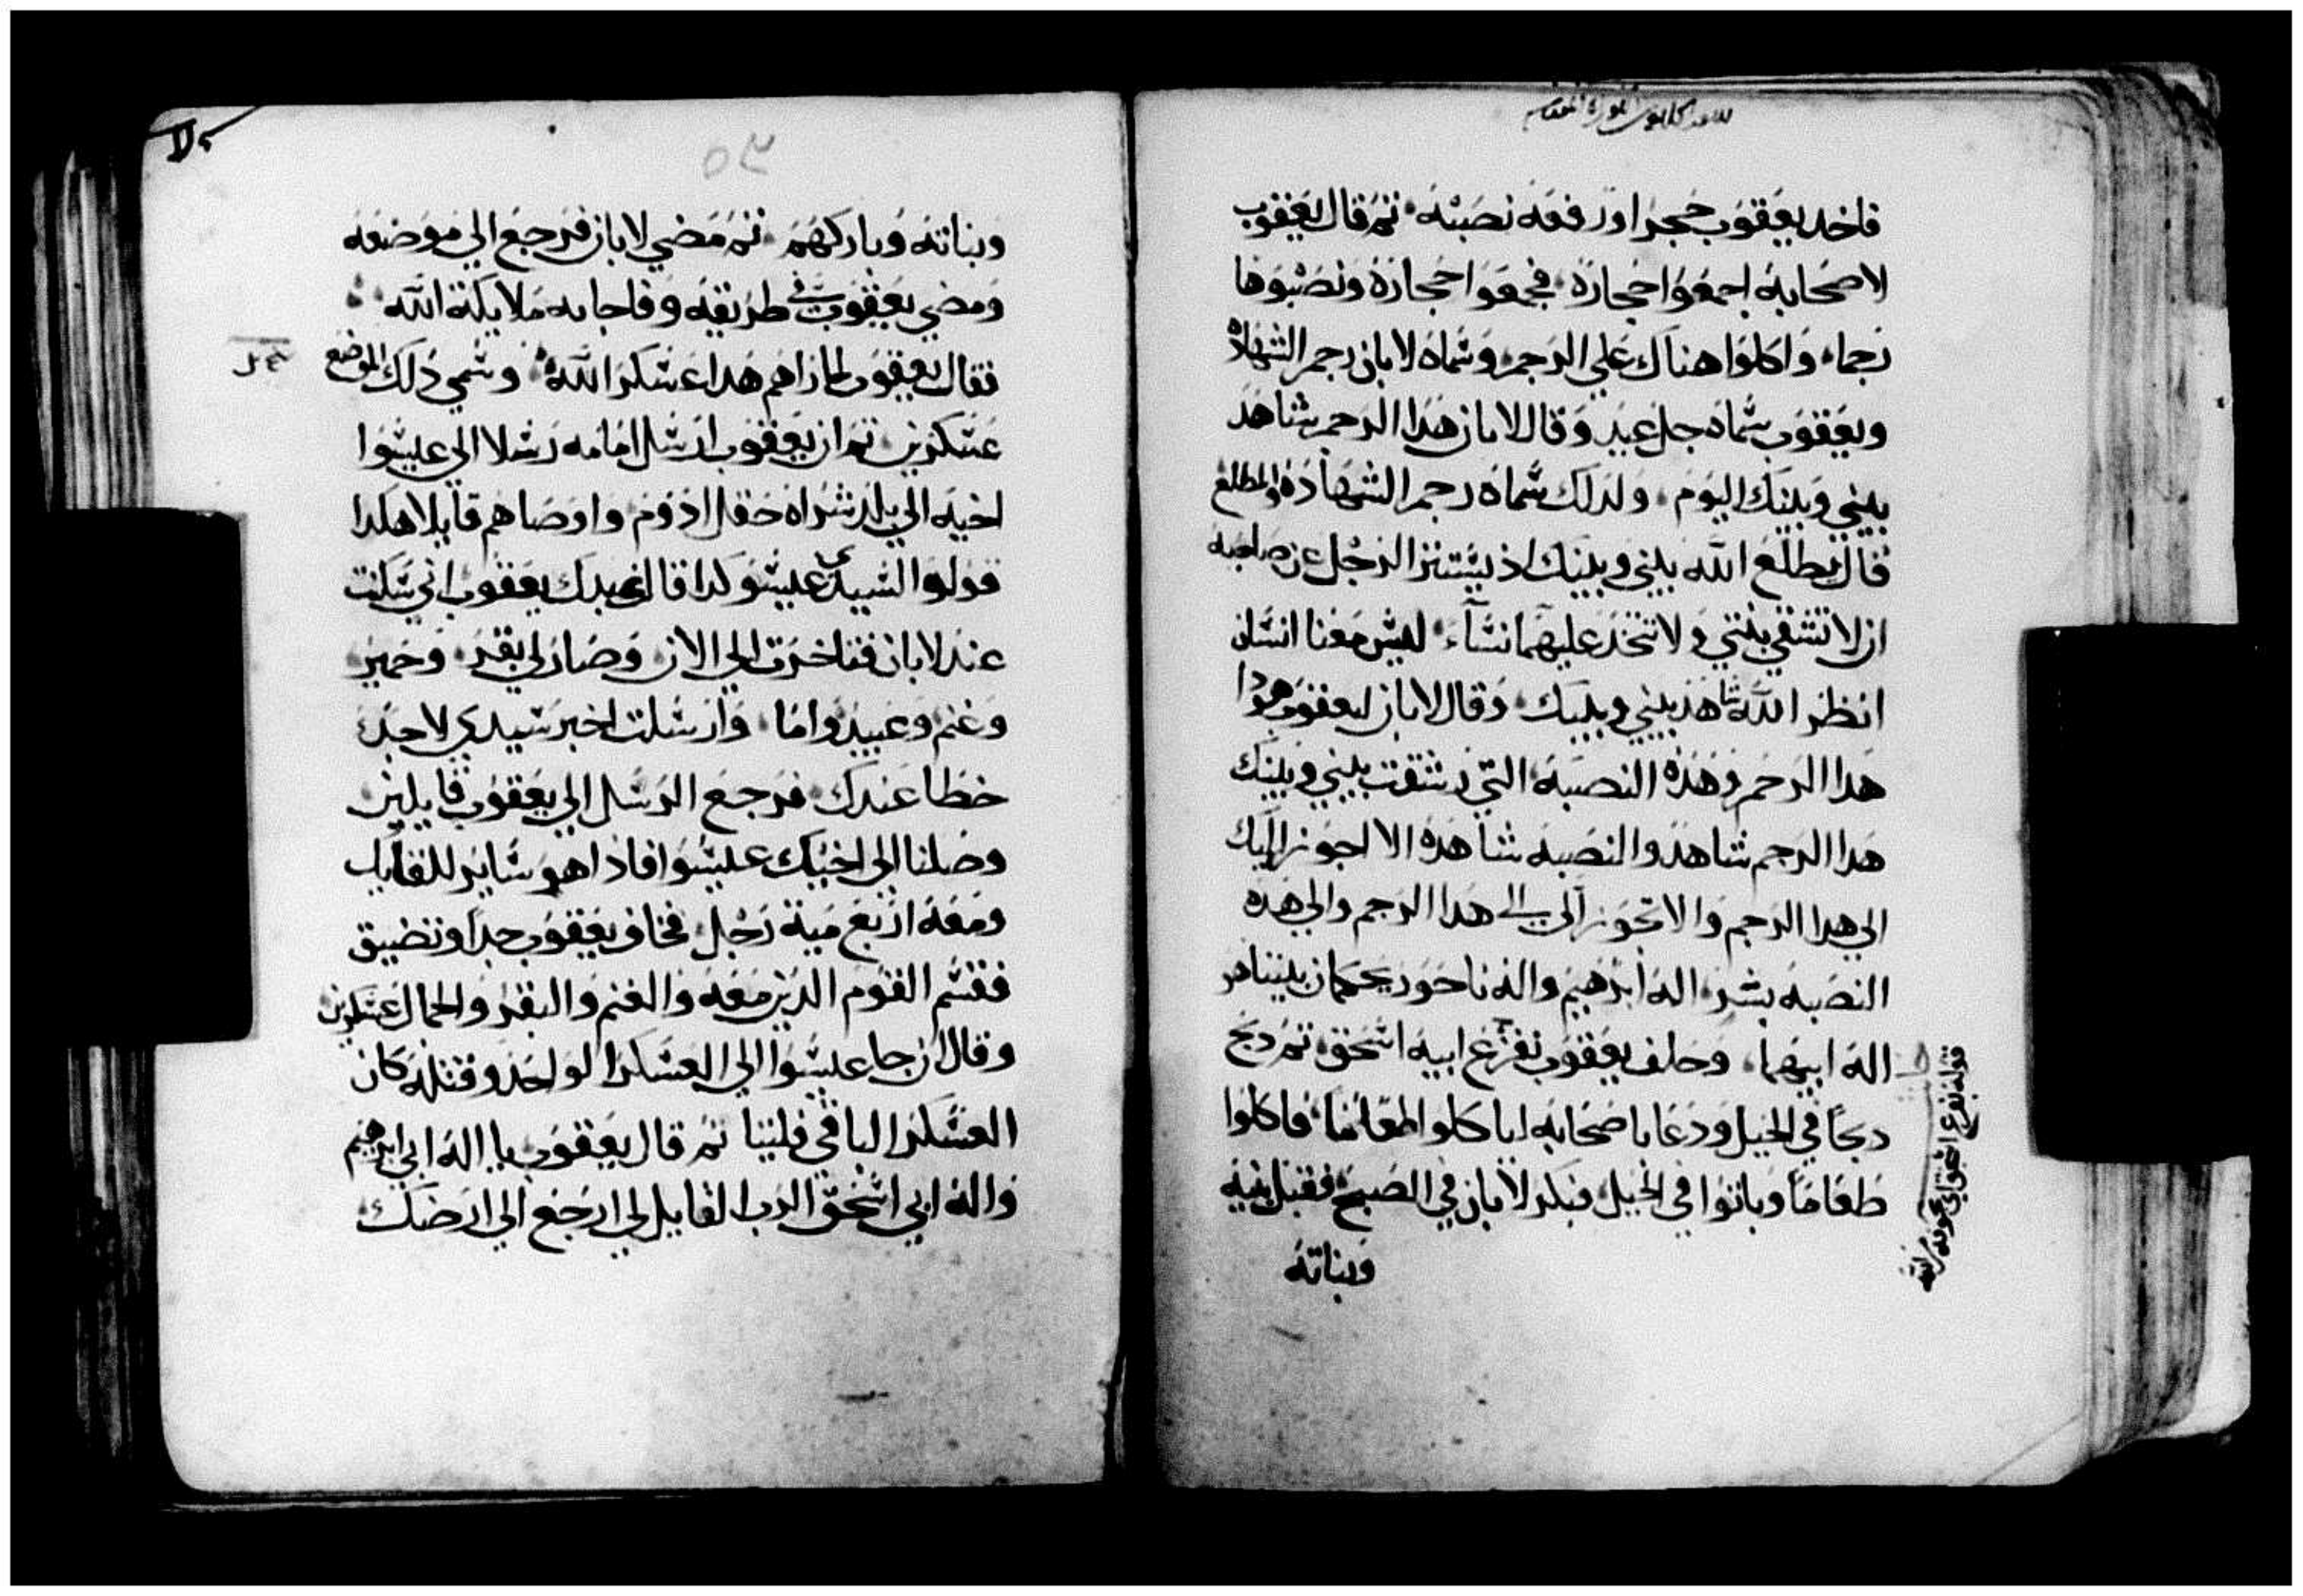 فاخد يعقوب حجرا ورفعه نصبته ثم قال يعقوب
لاصحابه اجمعوا حجارة فجمعوا حجارة ونصبوها
رجما واكلوا هناك علي الرجم وسماه لابان رجم الشهاده
ويعقوب سماه جل عيد وقال لابان هدا الرجم شاهد
بيني وبينك اليوم ولدلك سماه رجم الشهادة والمطلع
قال يطلع الله بيني وبينك اذ يستتر الرجل عن صاحبه
ان لا تشقي بنتي ولا تتخد عليهما نساء ليس معنا انسان
انظر الله شاهد بيني وبينك وقال لابان ليعقوب هودا
هدا الرجم وهده النصبة التي رشقت بيني وبينك
هدا الرجم شاهد والنصبه شاهدة الا اجوز اليك
الي هدا الرجم والا تجوز الي الي هدا الرجم والي هده
النصبه بشر اله ابرهيم واله ناحور يحكمان بيننا هو
اله ابيهما وحلف يعقوب بفزع ابيه اسحق ثم دبح
دبحا في الجبل ودعا باصحابه لياكلوا طعاما فاكلوا
طعاما وباتوا في الجبل فبكر لابان في الصبح فقبل بنيه
وبناته
٥٣
وبناته وباركهم ثم مضي لابان فرجع الي موضعه
ومضي يعقوب في طريقه وفاجابه ملايكة الله
فقال يعقوب لما راهم هدا عسكر الله وسمي دلك الموضع
عسكرين ثم ان يعقوب ارسل امامه رسلا الي عيسوا
اخيه الي بلد شراه حقل ادوم واوصاهم قايلا هكدا
قولوا لسيدي عيسو كدا قال عبدك يعقوب اني سكنت
عند لابان فتاخرت الي الان وصار لي بقر وحمير
وغنم وعبيد واما وارسلت اخبر سيدي لاجد
خظا عندك فرجع الرسل الي يعقوب قايلين
وصلنا الي اخيك عيسوا فادا هو ساير للقايك
ومعه اربع مية رجل فخاف يعقوب جدا وتضيق
فقسم القوم الدين معه والغنم والبقر والجمال عسكرين
وقال ان جا عيسوا الي العسكر الواحد وقتله كان
العسكر الباقي فليتا ثم قال يعقوب يا اله ابي ابرهيم
واله ابي اسحق الرب القايل لي ارجع الي ارضك